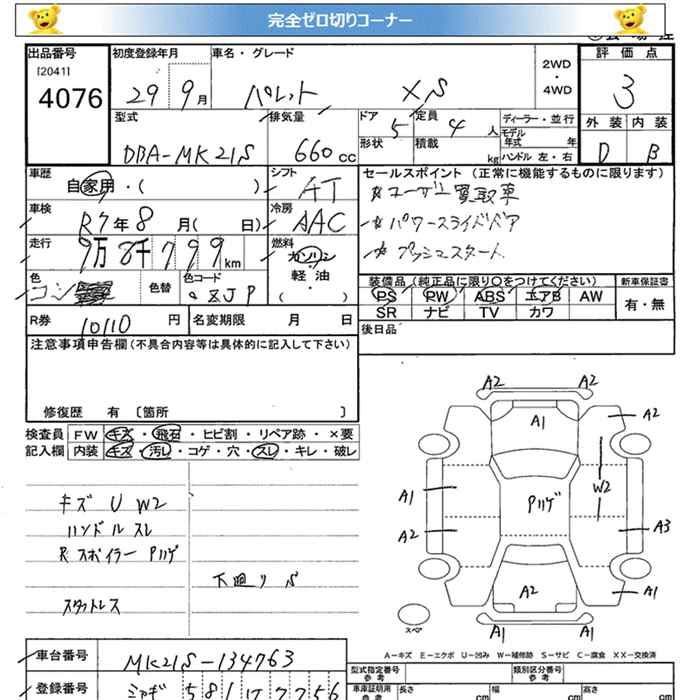 完全ゼロ切りコーナー
出品番号
[2041]
4076
初度登録年月
29 9月
車名・グレード
パレット XS
2WD
・
4WD
評価点
3
外装 内装
D B
型式
DBA-MK21S
排気量
660cc
ドア 5
形状
定員 4人
積載 kg
ディーラー・並行
モデル
年式 年
ハンドル 左・右
車歴
自家用・( )
シフト
AT
車検
R7年8月( 日)
冷房
AAC
走行
9万8千799km
燃料
ガソリン
軽・油
( )
色
コン
色替
色コード
ZJP
R券 10110円
名変期限 月 日
セールスポイント (正常に機能するものに限ります)
☆ユーザー買取車
☆パワースライドドア
☆プッシュスタート
装備品 (純正品に限り○をつけてください)
PS PW ABS エアB AW
SR ナビ TV カワ
新車保証書
有・無
後日品
注意事項申告欄(不具合内容等は具体的に記入して下さい)
修復歴 有 〔箇所 〕
検査員
記入欄
FW キズ・飛石・ヒビ割・リペア跡・×要
内装 キズ・汚レ・コゲ・穴・スレ・キレ・破レ
キズ U W2
ハンドルスレ
Rスポイラー Pハゲ
スタットレス
下廻りS
A2 A2
A1 A2
A1 W2
Pハゲ
A2 A3
A2 A1
A1 A1
スペア
A-キズ E-エクボ U-凹み W-補修跡 S-サビ C-腐食 XX-交換済
車台番号
MK21S-134763
登録番号
ミヤギ 581
型式指定番号
参考
類別区分番号
参考
車庫証明用
参考
長さ cm
幅 cm
高さ cm